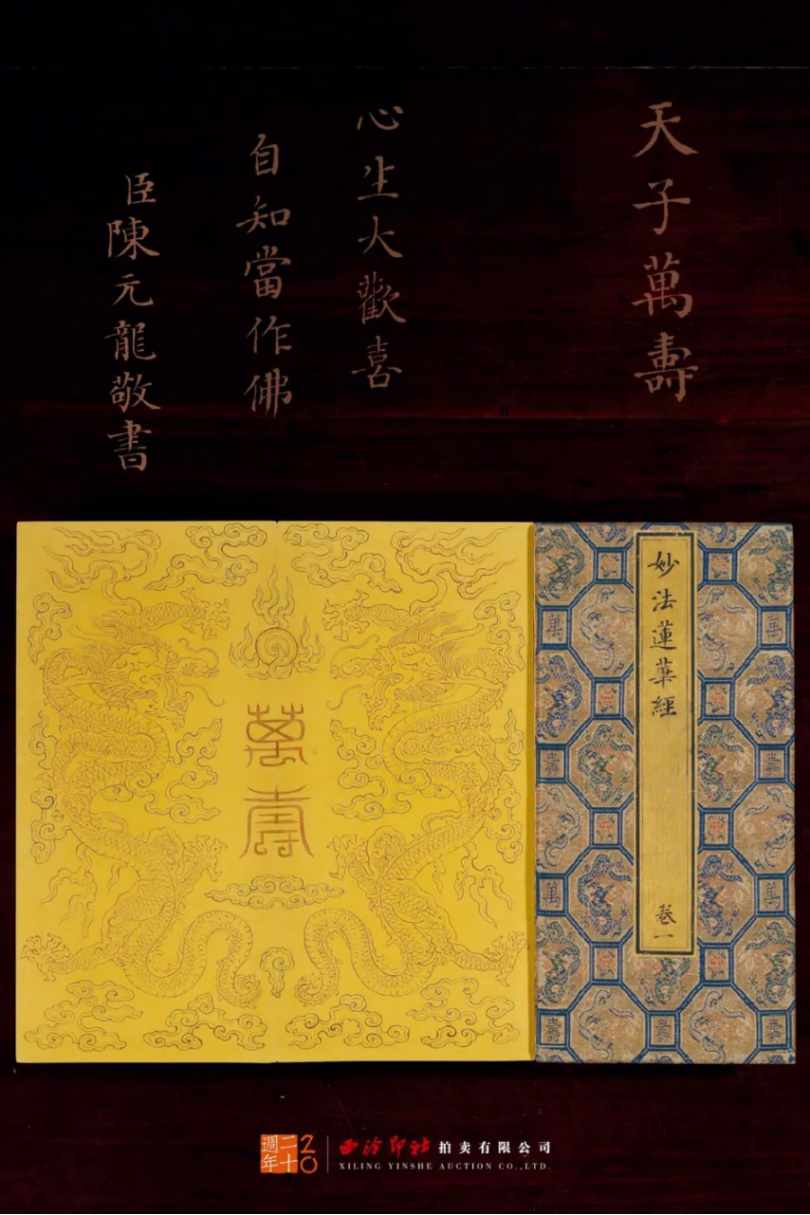 天子萬壽
心生大歡喜
自知當作佛
臣陳元龍敬書
萬壽
妙法蓮華經
卷一
二十週年
20
西泠印社拍卖有限公司
XILING YINSHE AUCTION CO.,LTD.